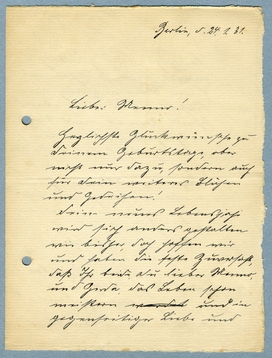 Berlin, d. 24. 9. 31.
Lieber Menno!
Herzlichste Glückwünsche zu
Deinem Geburtstage, aber
nicht nur dazu, sondern auch
für Dein weiteres Blühen
und Gedeihen!
Dein neues Lebensjahr
wird sich anders gestalten
wie bisher, doch hoffen wir
und haben die feste Zuversicht,
daß Ihr beide Du lieber Menno
und Gerda das Leben schon
meistern und in
gegenseitiger Liebe und